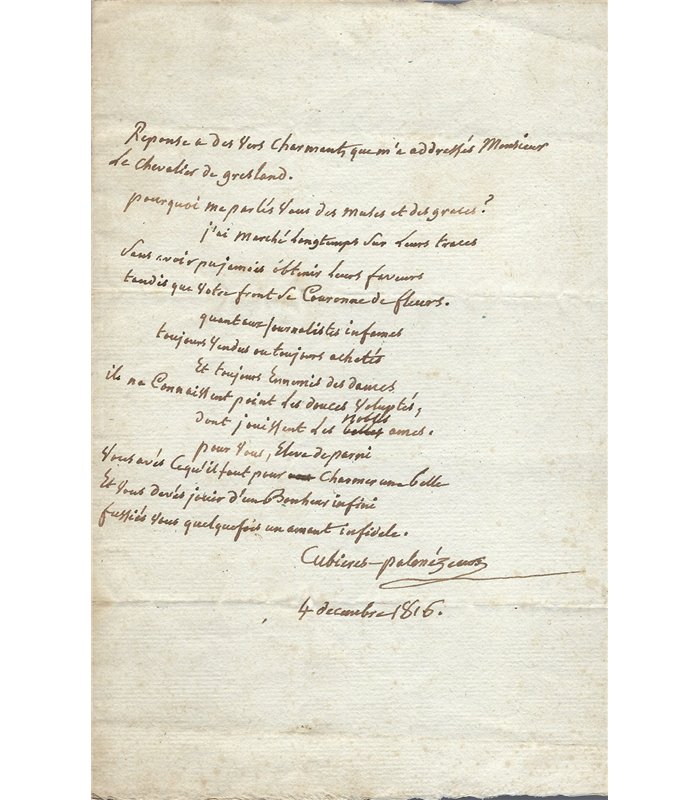 Reponse a des vers charmants, que m'a addressés Monsieur
Le Chevalier de gresland.
pourquoi me parlés vous des muses et des graces?
j'ai marché longtemps sur leurs traces
sans avoir pu jamais obtenir leurs faveurs
tandis que votre front se Couronne de fleurs.
quant aux journalistes infames
toujours vendus ou toujours achetés
Et toujours Ennemis des dames
ils ne Connaissent point les douces voluptés,
nobles
dont jouissent les belles ames.
pour vous, Eleve de parni
vous avés Ce qu'il faut pour Charmer une belle
Et vous devés jouir d'un Bonheur infini
fussiés vous quelquefois un amant infidele.
Cubieres-palmézeaux
4 decembre 1816.